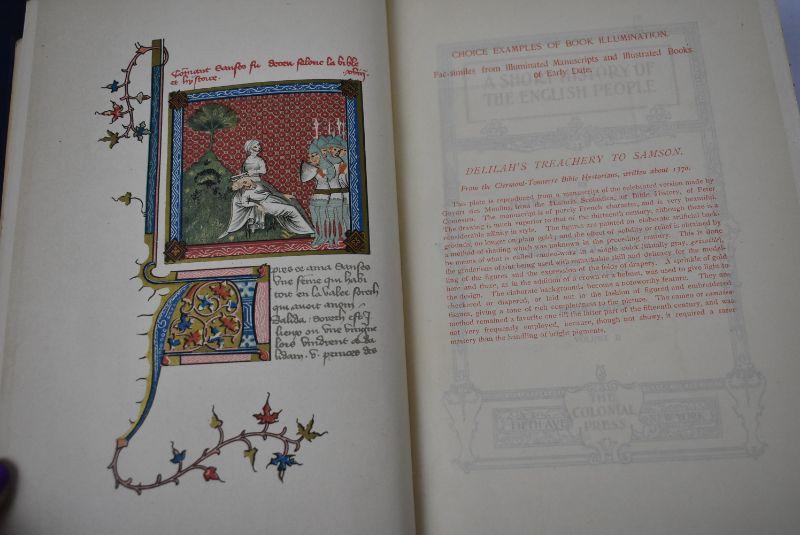 Comant Sanses fu deceu selonc la bible
et hystoire.
Apres ce ama Sanses
une feme qui habi
toit en la valee soreth
qui avoit a nom
Dalida. Soreth est .I.
lieus ou une vingne
lors vindrent a da
lidam .v. princes des
CHOICE EXAMPLES OF BOOK ILLUMINATION.
Fac-similes from Illuminated Manuscripts and Illustrated Books
of Early Date.
A SHORT HISTORY OF
THE ENGLISH PEOPLE
DELILAH'S TREACHERY TO SAMSON.
From the Clermont-Tonnerre Bible Hystoriaus, written about 1370.
This plate is reproduced from a manuscript of the celebrated version made by
Guyars des Moulins from the Historia Scolastica, or Bible History, of Peter
Comestor. The manuscript is of purely French character, and is very beautiful.
The drawing is much superior to that of the thirteenth century, although there is a
considerable affinity in style. The figures are painted on elaborate artificial back-
grounds, no longer on plain gold; and the effect of solidity or relief is obtained by
a method of shading which was unknown in the preceding century. This is done
by means of what is called camieu-work in a single color (usually gray, grisaille),
the gradations of tint being used with remarkable skill and delicacy for the model-
ling of the figures and the expression of the folds of drapery. A sprinkle of gold
here and there, as in the addition of a crown or a helmet, was used to give light to
the design. The elaborate background, become a noteworthy feature. They are
checkered, or diapered, or laid out in the fashion of figured and embroidered
tissues, giving a tone of rich completeness to the picture. The cameo or camaieu-
method remained a favorite one till the latter part of the fifteenth century, and was
not very frequently employed, because, though not showy, it required a surer
mastery than the handling of bright pigments.
VOLUME II
THE
COLONIAL
PRESS
FIFTH AVE